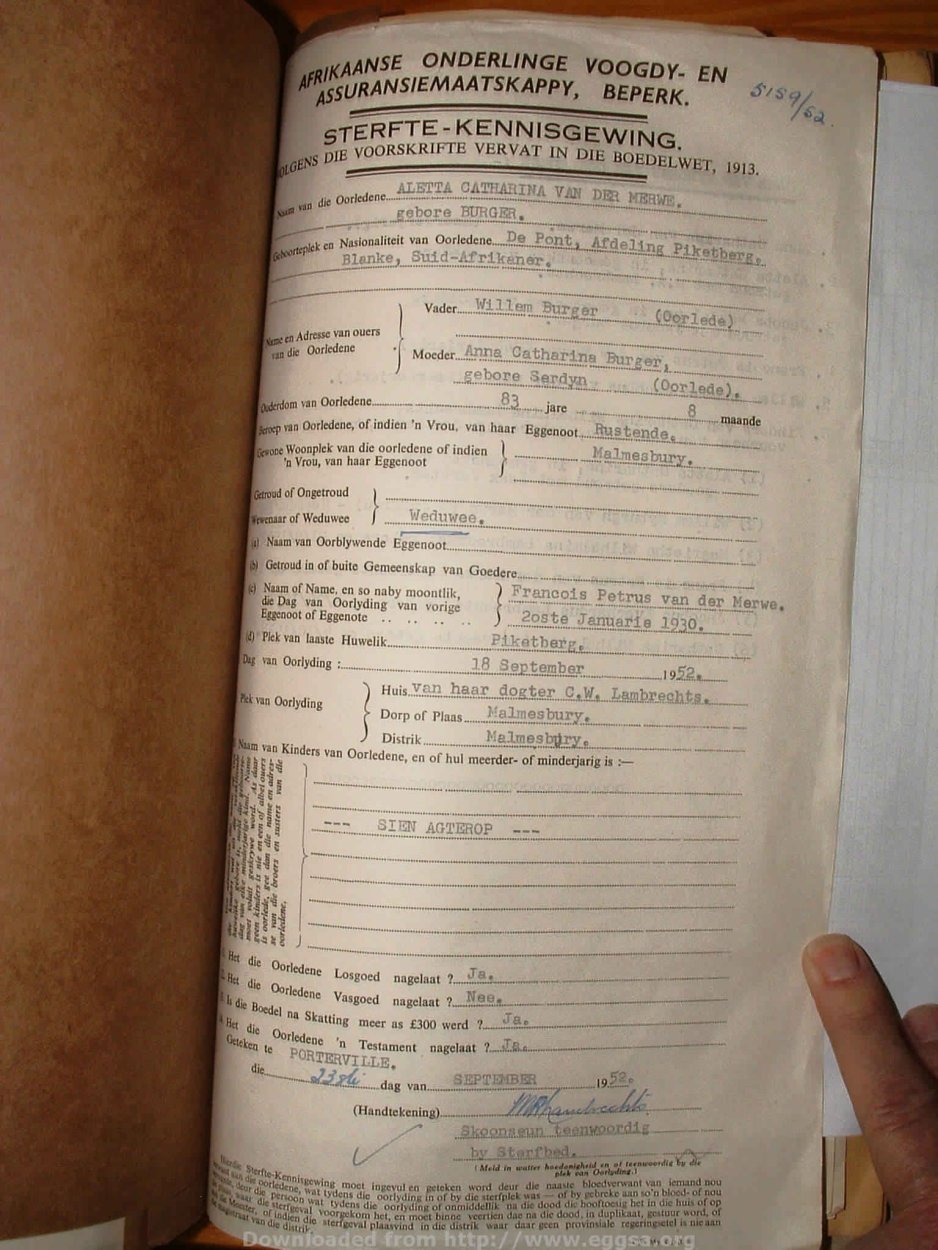 AFRIKAANSE ONDERLINGE VOOGDY- EN
ASSURANSIEMAATSKAPPY, BEPERK.
5159/52.
STERFTE-KENNISGEWING.
VOLGENS DIE VOORSKRIFTE VERVAT IN DIE BOEDELWET, 1913.
Naam van die Oorledene ALETTA CATHARINA VAN DER MERWE,
gebore BURGER.
Geboorteplek en Nasionaliteit van Oorledene De Pont, Afdeling Piketberg.
Blanke, Suid-Afrikaner.
Name en Adresse van ouers van die Oorledene
Vader Willem Burger (Oorlede)
Moeder Anna Catharina Burger,
gebore Serdyn (Oorlede).
Ouderdom van Oorledene 83 jare 8 maande
Beroep van Oorledene, of indien 'n Vrou, van haar Eggenoot Rustende.
Gewone Woonplek van die oorledene of indien
'n Vrou, van haar Eggenoot Malmesbury.
Getroud of Ongetroud
Wewenaar of Weduwee Weduwee.
(a) Naam van Oorblywende Eggenoot
(b) Getroud in of buite Gemeenskap van Goedere
(c) Naam of Name, en so naby moontlik, Francois Petrus van der Merwe.
die Dag van Oorlyding van vorige
Eggenoot of Eggenote .. .. .. .. .. 20ste Januarie 1930.
(d) Plek van laaste Huwelik Piketberg.
Dag van Oorlyding : 18 September 1952.
Plek van Oorlyding
Huis van haar dogter C.W. Lambrechts.
Dorp of Plaas Malmesbury.
Distrik Malmesbury.
Naam van Kinders van Oorledene, en of hul meerder- of minderjarig is :—
dag van elke minderjarige kind. Name
moet voluit geskrywe word. As daar
geen kinders is nie en een of albei ouers
is oorlede, gee dan die name en adres-
se van die broers en susters van die
oorledene.
--- SIEN AGTEROP ---
Het die Oorledene Losgoed nagelaat ? Ja.
Het die Oorledene Vasgoed nagelaat ? Nee.
Is die Boedel na Skatting meer as £300 werd ? Ja.
Het die Oorledene 'n Testament nagelaat ? Ja.
Geteken te PORTERVILLE.
die 23ste dag van SEPTEMBER 1952.
(Handtekening) Lambrechts
Skoonseun teenwoordig
by Sterfbed.
(Meld in watter hoedanigheid en of teenwoordig by die
plek van Oorlyding.)
Hierdie Sterfte-Kennisgewing moet ingevul en geteken word deur die naaste bloedverwant van iemand nou
van die oorledene, wat tydens die oorlyding in of by die sterfplek was — of by gebreke aan so'n bloed- of nou
verwante, deur die persoon wat tydens die oorlyding of onmiddellik na die dood die hooftoesig het in die huis of op
plek, waar die sterfgeval voorgekom het, en moet binne veertien dae na die dood, in duplikaat, gestuur word, of
die Meester, of indien die sterfgeval plaasvind in die distrik waar daar geen provinsiale regeringsetel is nie aan
magistraat van die distrik.
Downloaded from http://www.eggsa.org